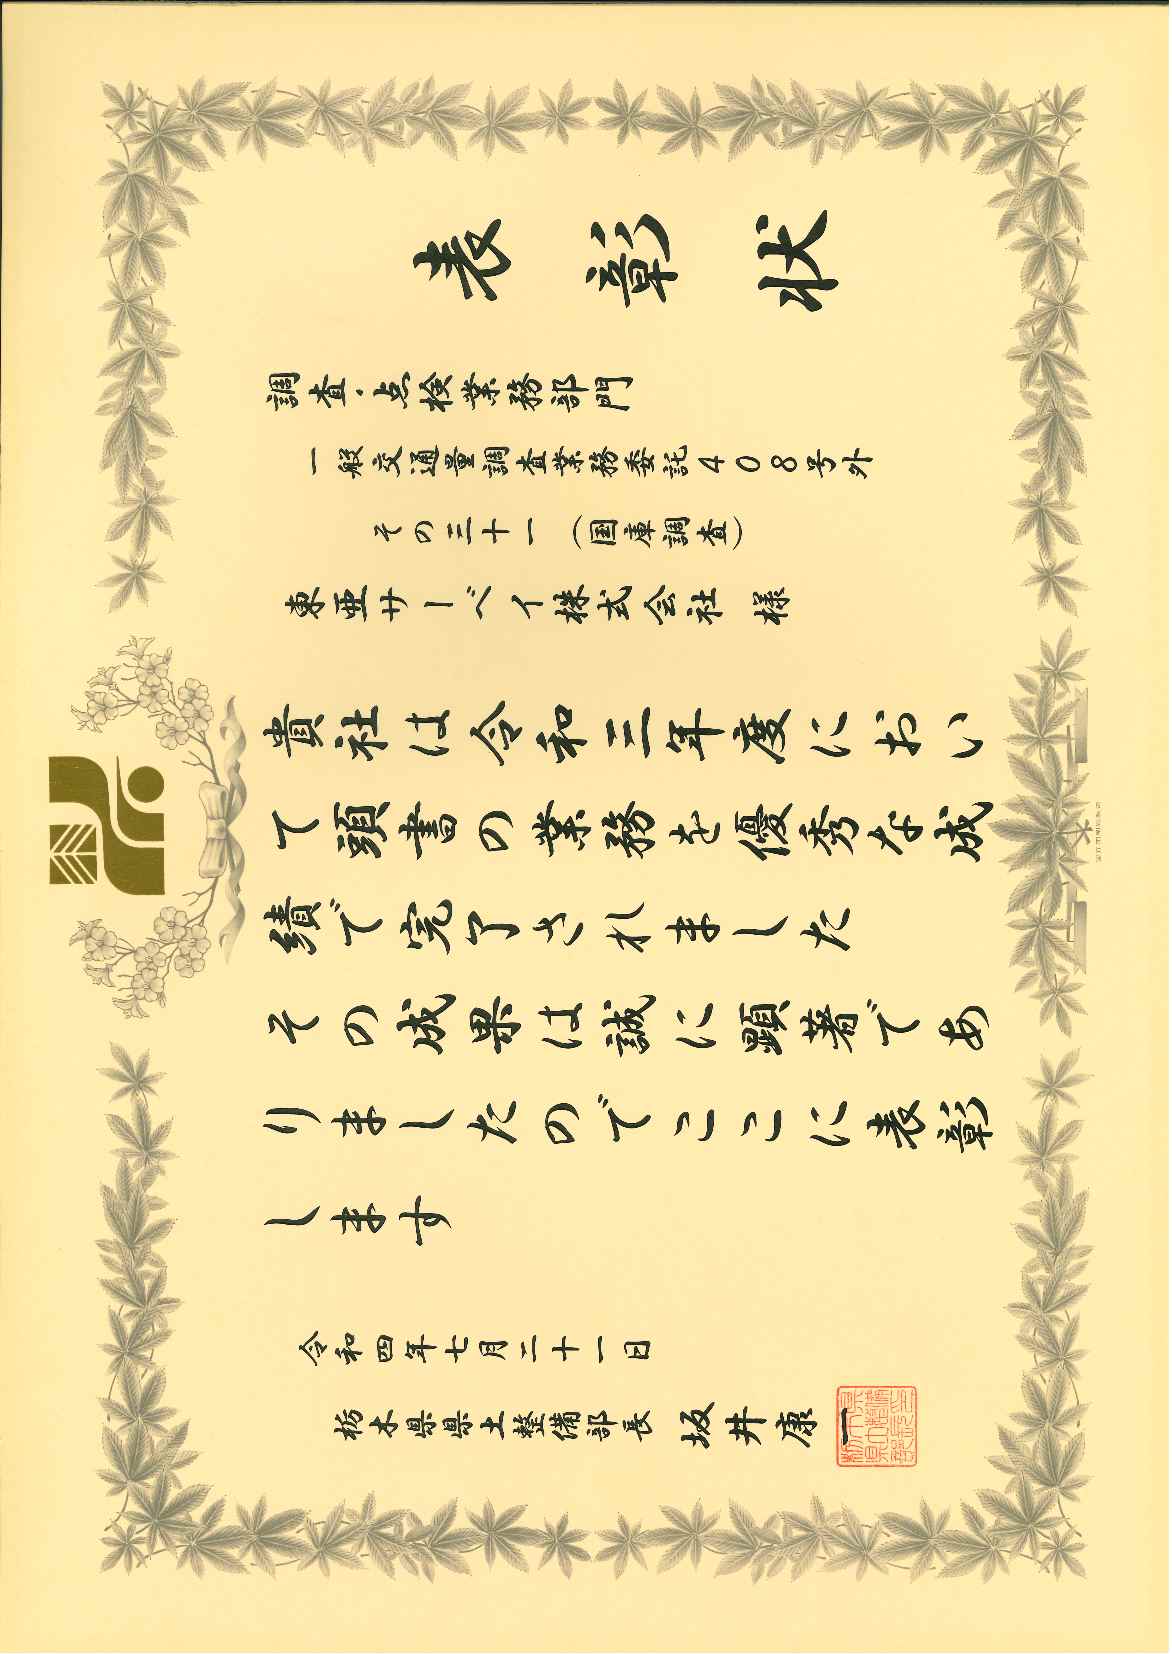 表彰状
調査・点検業務部門
一般交通量調査業務委託408号外
その三十一(国庫調査)
東亜サーベイ株式会社 様
貴社は令和三年度におい
て頭書の業務を優秀な成
績で完了されました
その成果は誠に顕著であ
りましたのでここに表彰
します
令和四年七月二十一日
栃木県県土整備部長 坂井康一